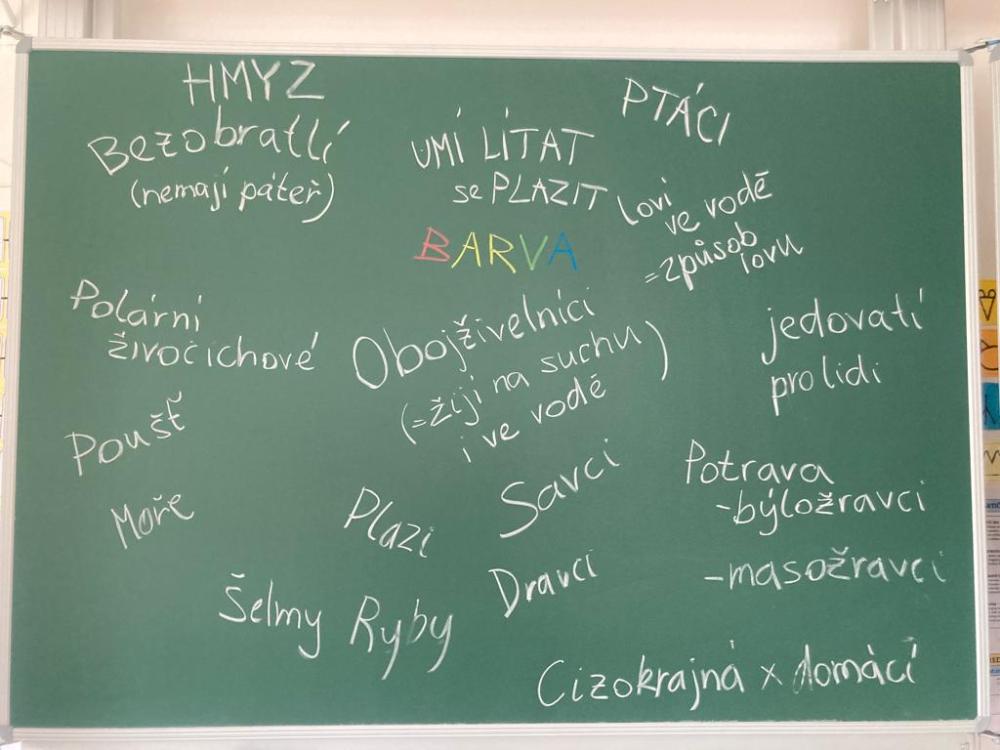 HMYZ
Bezobratlí
(nemají páteř)
UMÍ LÍTAT
se PLAZIT
PTÁCI
Loví
ve vodě
=způsob
lovu
BARVA
Polární
živočichové
Obojživelníci
(=žijí na suchu)
i ve vodě
jedovatí
pro lidi
Poušť
Moře
Plazi
Savci
Potrava
-býložravci
-masožravci
Dravci
Šelmy
Ryby
Cizokrajná x domácí